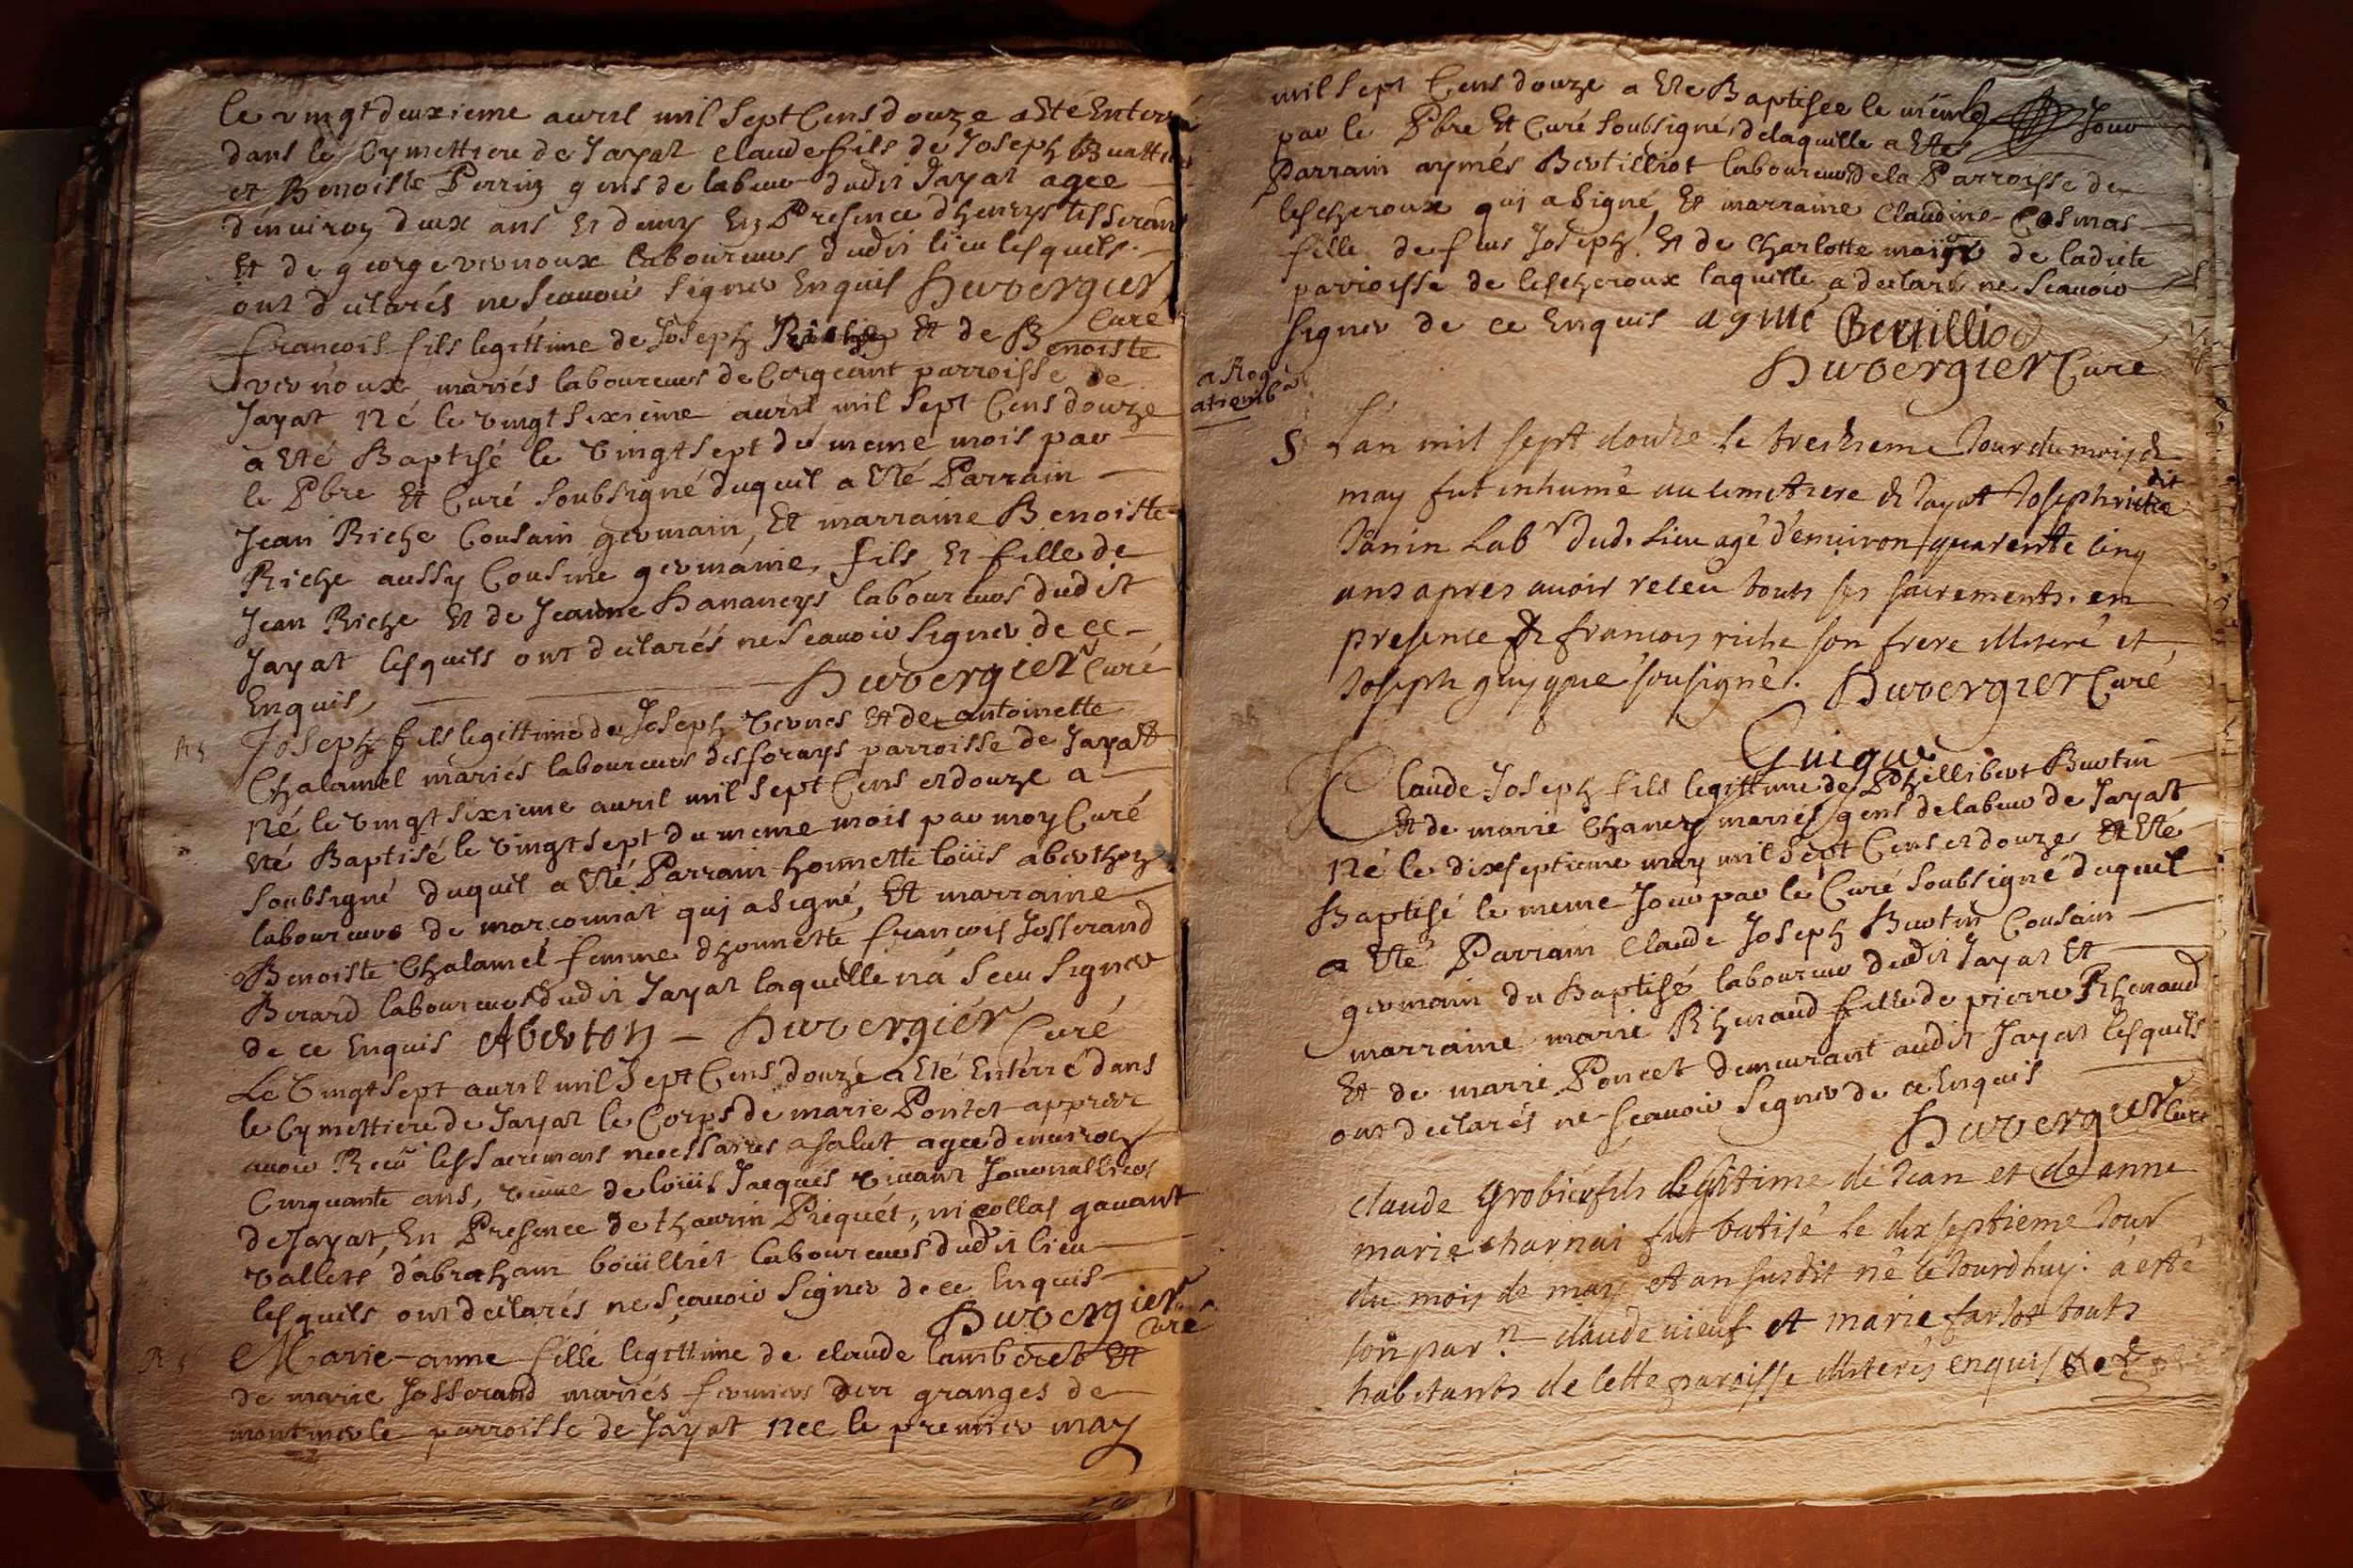 le vingt deuxieme avril mil sept Cens douze a Eté Enterré
dans le Cymettiere de Jayat claude fils de Joseph
et Benoiste Perrin gens de labeur dudit Jayat agee
d'enuiron deux ans Et demy En Presence dhenrys tisserand
Et de george vernoux laboureurs dudit lieu lesquels
ont déclarés ne Scauoir Signer Enquis Duvergier
Curé
francois fils legittime de Joseph Riche Et de Benoiste
vernoux mariés laboureurs de Corgeant parroisse de
Jayat Né le vingt sixieme avril mil sept Cens douze
a Eté Baptisé le vingt sept du meme mois par
le Pbre Et Curé soubsigné duquel a Eté Parrain
Jean Riche Cousain germain, Et marraine Benoiste
Riche aussy Cousine germaine, fils Et fille de
Jean Riche Et de Jeanne Dananeys laboureurs dudit
Jayat lesquels ont déclarés ne Scauoir Signer de ce
Enquis, Duvergier Curé
Joseph fils legittime de Joseph vernes Et de antoinette
Chalamel mariés laboureurs des forays parroisse de Jayat
Né le vingt sixieme auril mil sept Cens et douze a
Eté Baptisé le vingt sept du meme mois par moy Curé
Soubsigné duquel a Eté Parrain honnette loüis aberthon
laboureur de marçonnat qui a signé, Et marraine
Benoiste Chalamel femme dhonnette francois Josserand
Berard laboureurs dudit Jayat laquelle n'a Sceu Signer
de ce Enquis Aberton – Duvergier Curé
Le vingt sept auril mil Sept Cens douze a Eté Enterré dans
le Cymettiere de Jayat le Corps de marie Pontet apprez
auoir Receu les Sacremens necessaires a salut agee denuiron
Cinquante ans, veuue de loüis Jacques viuant Journallier
de Jayat, En Presence de thaurin Piquet, nicollas gauant
vallets d'abraham boüilliet laboureurs dudit lieu
lesquels ont déclarés ne Sçauoir Signer de ce Enquis
Duvergier
Curé
Marie-anne fille legittime de claude lamberet Et
de marie Josserand mariés fermiers des granges de
montmerle parroisse de Jayat Née le premier may
mil Sept Cens douze a Ete Baptisee le meme Jour
par le Pbre Et Curé Soubsigné, delaquelle a Eté
Parrain aymés Bertilliot laboureur de la Parroisse de
lescheroux qui a Signé, Et marraine Claudine Cosmas
fille de feu Joseph Et de Charlotte de ladicte
parroisse de lescheroux laquelle a declaré ne Scauoir
Signer de ce Enquis aymé Bertilliod
Duvergier Curé
S Lan mil sept douze le treisieme Jour du mois de
may fut inhumé au cimetiere de Jayat Joseph riche dit
Janin Labr dud. Lieu agé d'enuiron quarente cinq
ans apres auoir receu touts ses sacrements. en
presence de francois riche son frere illiteré et
Joseph guigue sousigné. Duvergier Curé
Guigue
Claude Joseph fils legittime de Phillibert Burtin
Et de marie Chanez mariés gens de labeur de Jayat
Né le dixseptieme may mil Sept Cens et douze Et Eté
Baptisé le meme Jour par le Curé Soubsigné duquel
a Eté Parrain Claude Joseph Burtin Cousain
germain du Baptisé laboureur dudit Jayat Et
marraine marie Rhenaud fille de pierre Rhenaud
Et de marie Poncet demeurant audit Jayat lesquels
ont declarés ne Scauoir Signer de ce Enquis
Duvergier Curé
claude Grobier fils legitime de Jean et de anne
marie charnai fut batisé le dix septieme Jour
du mois de may et an susdit né ce Jourdhuy. a esté
son parn claude uieuf et marie farlot touts
habitants de cette paroisse illiterés enquis